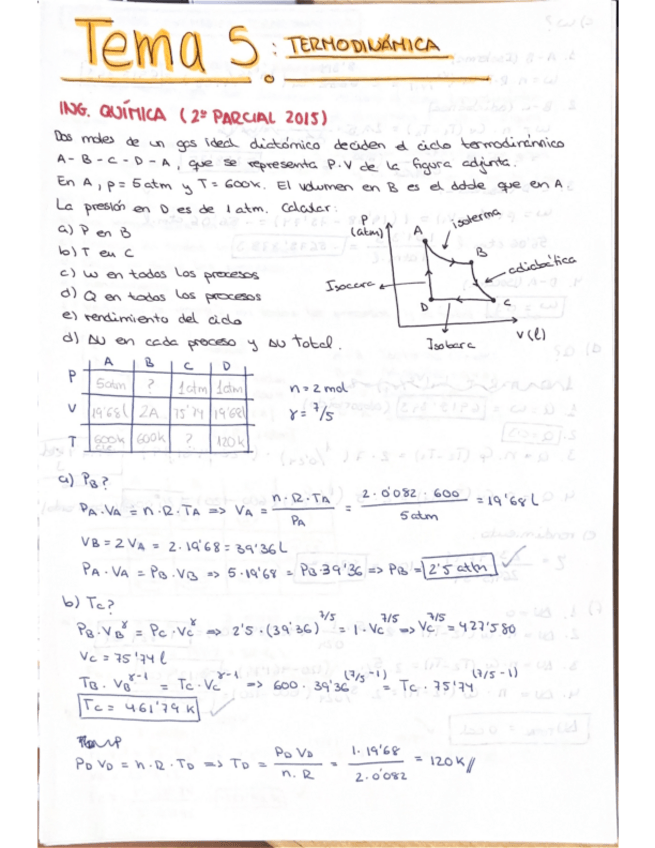 Tema 5: TERMODINÁMICA
ING. QUÍMICA (2º PARCIAL 2015)
Dos moles de un gas ideal diatómico deciden el ciclo termodinámico
A-B-C-D-A, que se representa P.V de la figura adjunta.
En A, p = 5 atm y T = 600K. El volumen en B es el doble que en A
La presión en D es de 1 atm. Calcular:
a) P en B
b) T en C
c) W en todos los procesos
d) Q en todos los procesos
e) rendimiento del ciclo
d) ΔU en cada proceso y ΔU total.
P (atm)
A
isoterma
B
adiabática
Isocora
D
C
V (l)
Isobara
A B C D
P 5atm ? 1atm 1atm
V 19'68l 2A 75'74 19'68l
T 600K 600K ? 120K
n = 2 mol
γ = 7/5
a) PB?
PA·VA = n·R·TA => VA = n·R·TA / PA = 2·0'082·600 / 5atm = 19'68 L
VB = 2VA = 2·19'68 = 39'36 L
PA·VA = PB·VB => 5·19'68 = PB·39'36 => PB = 2'5 atm
b) Tc?
PB·VB^γ = Pc·Vc^γ => 2'5·(39'36)^7/5 = 1·Vc^7/5 => Vc^7/5 = 427'580
Vc = 75'74 l
TB·VB^γ-1 = Tc·Vc^γ-1 => 600·39'36^(7/5-1) = Tc·75'74^(7/5-1)
Tc = 461'79 K
PD VD = n·R·TD => TD = PD VD / n.R = 1·19'68 / 2·0'082 = 120K //